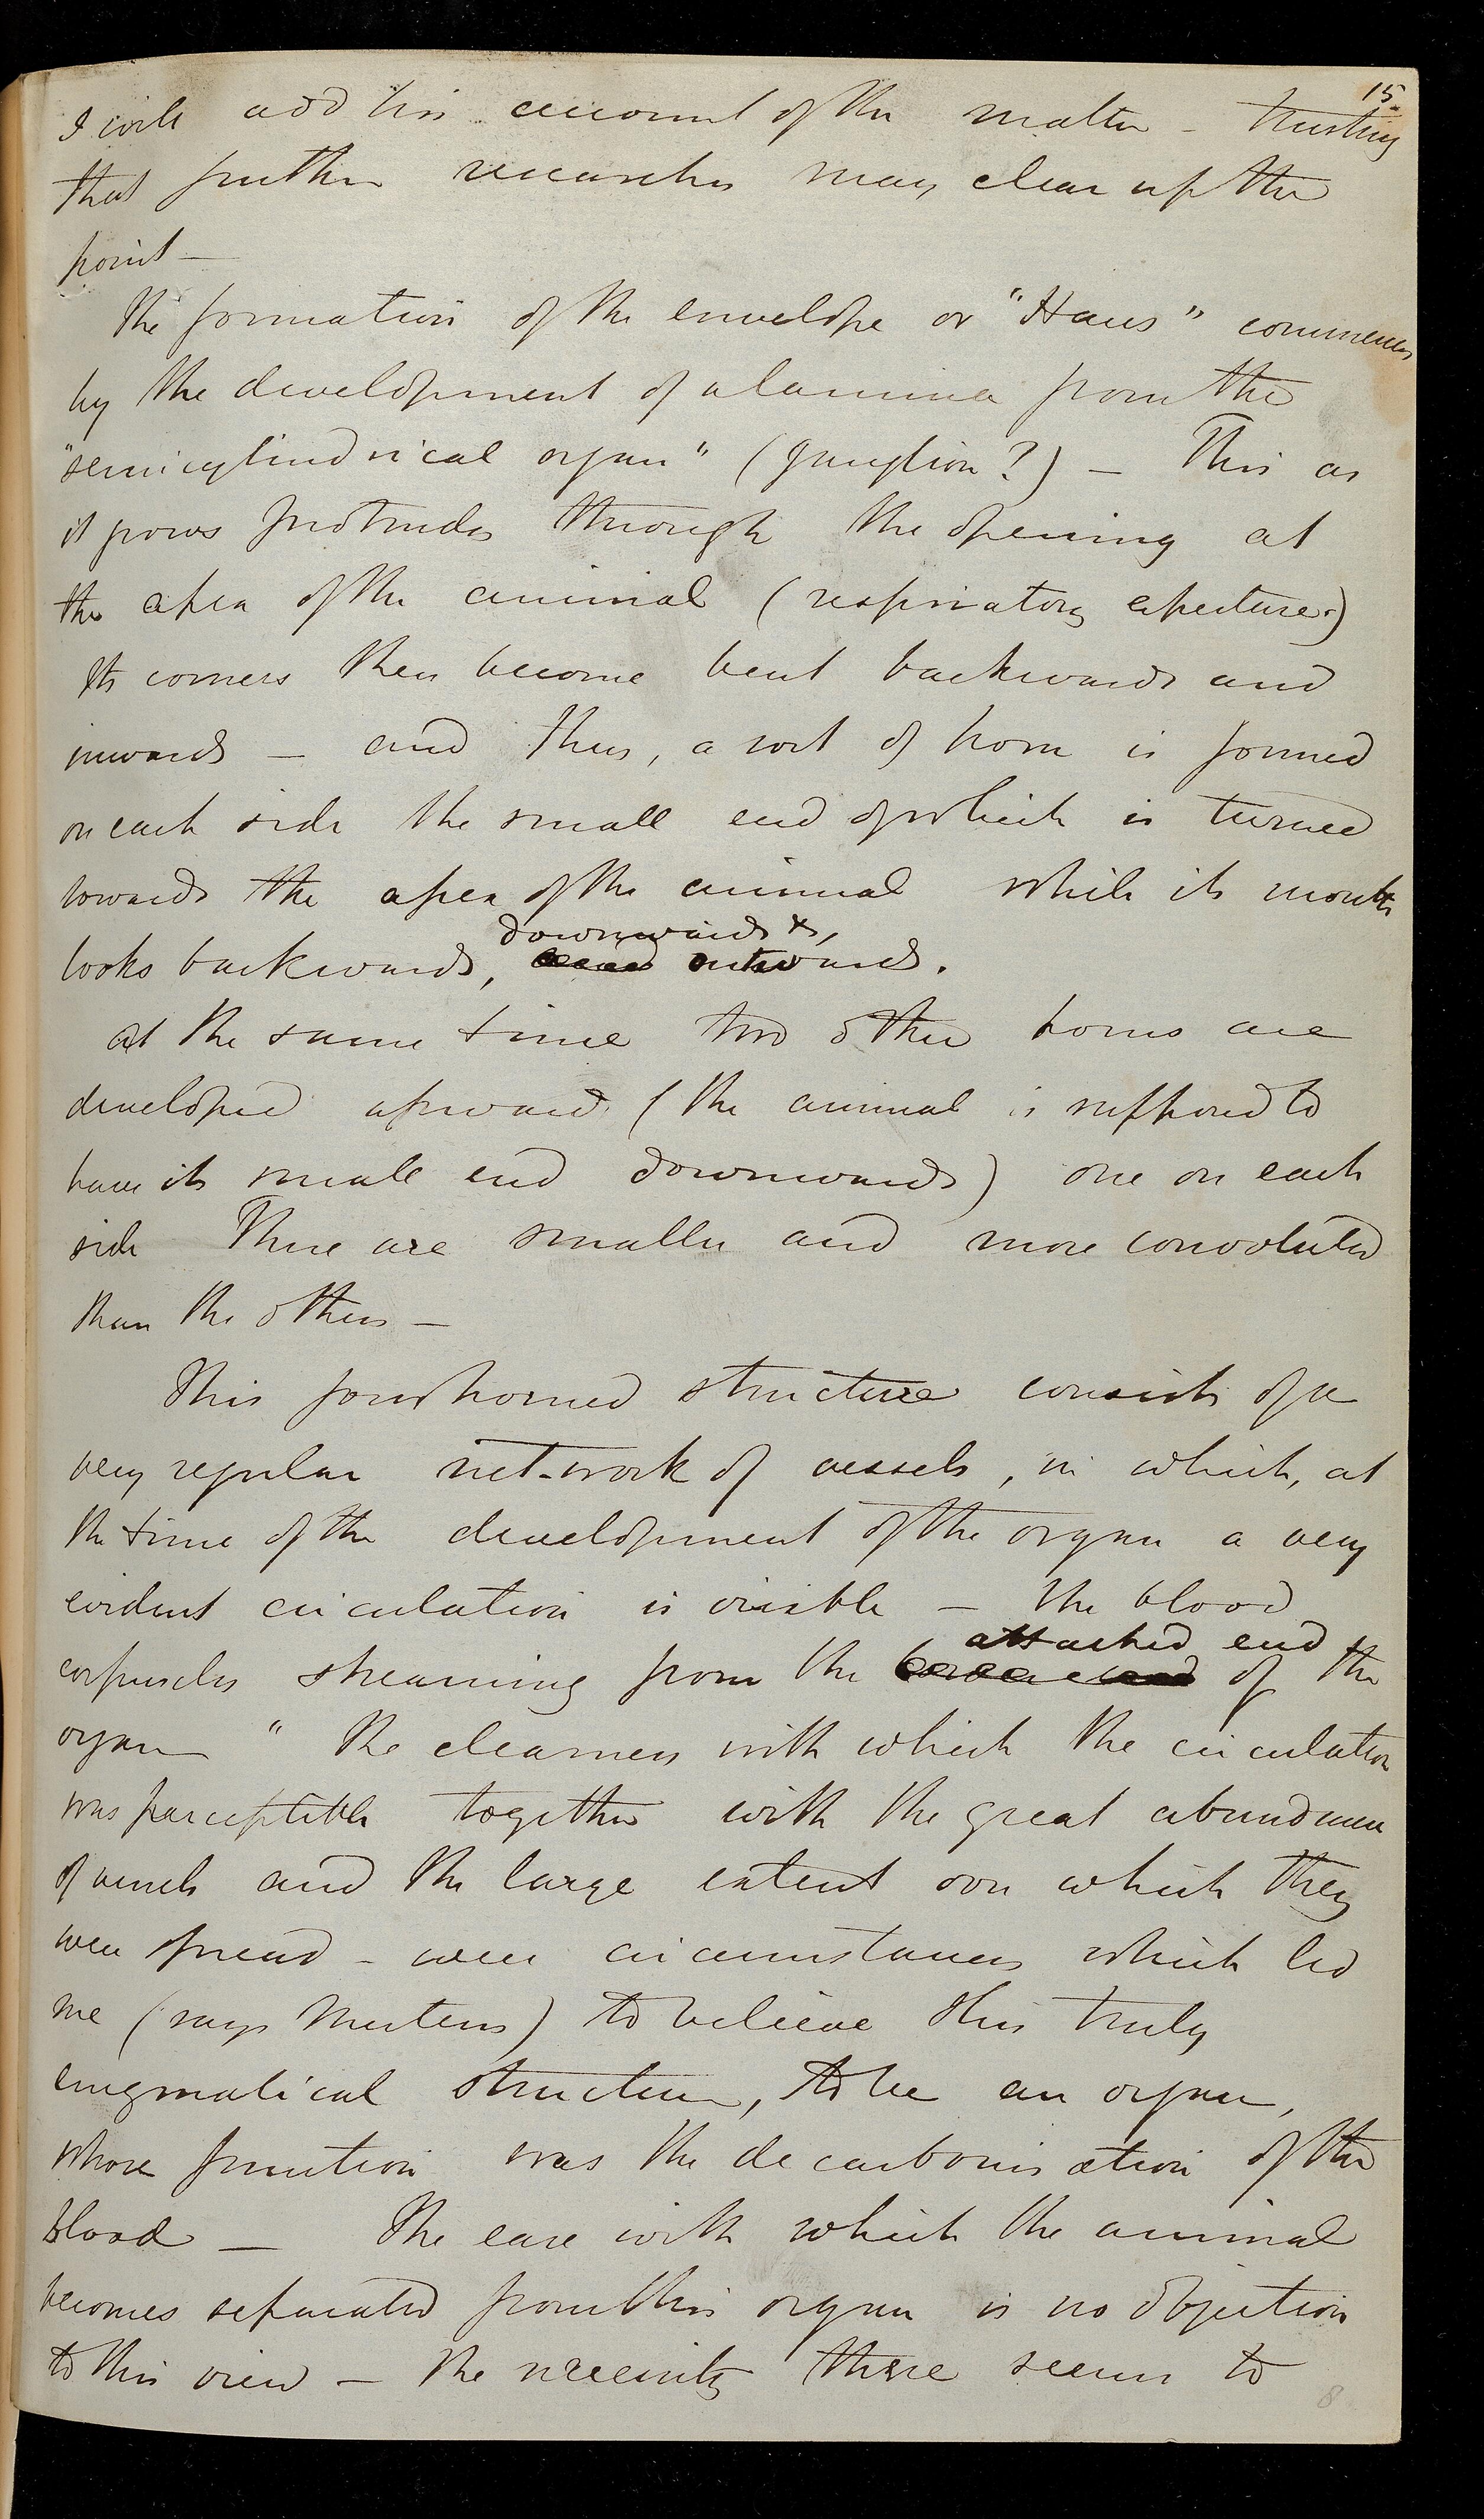 15.
I will add his account of the matter – trusting
that further researches may clear up the
point –
The formation of the envelope or "Haus" commences
by the development of a lamina from the
"semicylindrical organ" (ganglion?) – This as
it grows protrudes through the opening at
the apex of the animal (respiratory aperture.)
Its corners then become bent backwards and
inwards – and thus, a sort of horn is formed
on each side the small end of which is turned
towards the apex of the animal while its mouth
downwards &,
looks backwards, outwards.
At the same time two other horns are
developed upward (the animal is supposed to
have its small end downwards) one on each
side These are smaller and more convoluted
than the others –
This fourhorned structure consists of a
very regular net-work of vessels, in which, at
the time of the development of the organ a very
evident circulation is visible – the blood
attached end
corpuscles streaming from the of the
organ " The clearness with which the circulation
was perceptible together with the great abundance
of vessels and the large extent over which they
were spread – were circumstances which led
me (says Mertens) to believe this truly
enigmatical structure, to be an organ,
whose function was the decarbonisation of the
blood – The ease with which the animal
becomes separated from this organ is no objection
to this view – the necessity there seems to
8